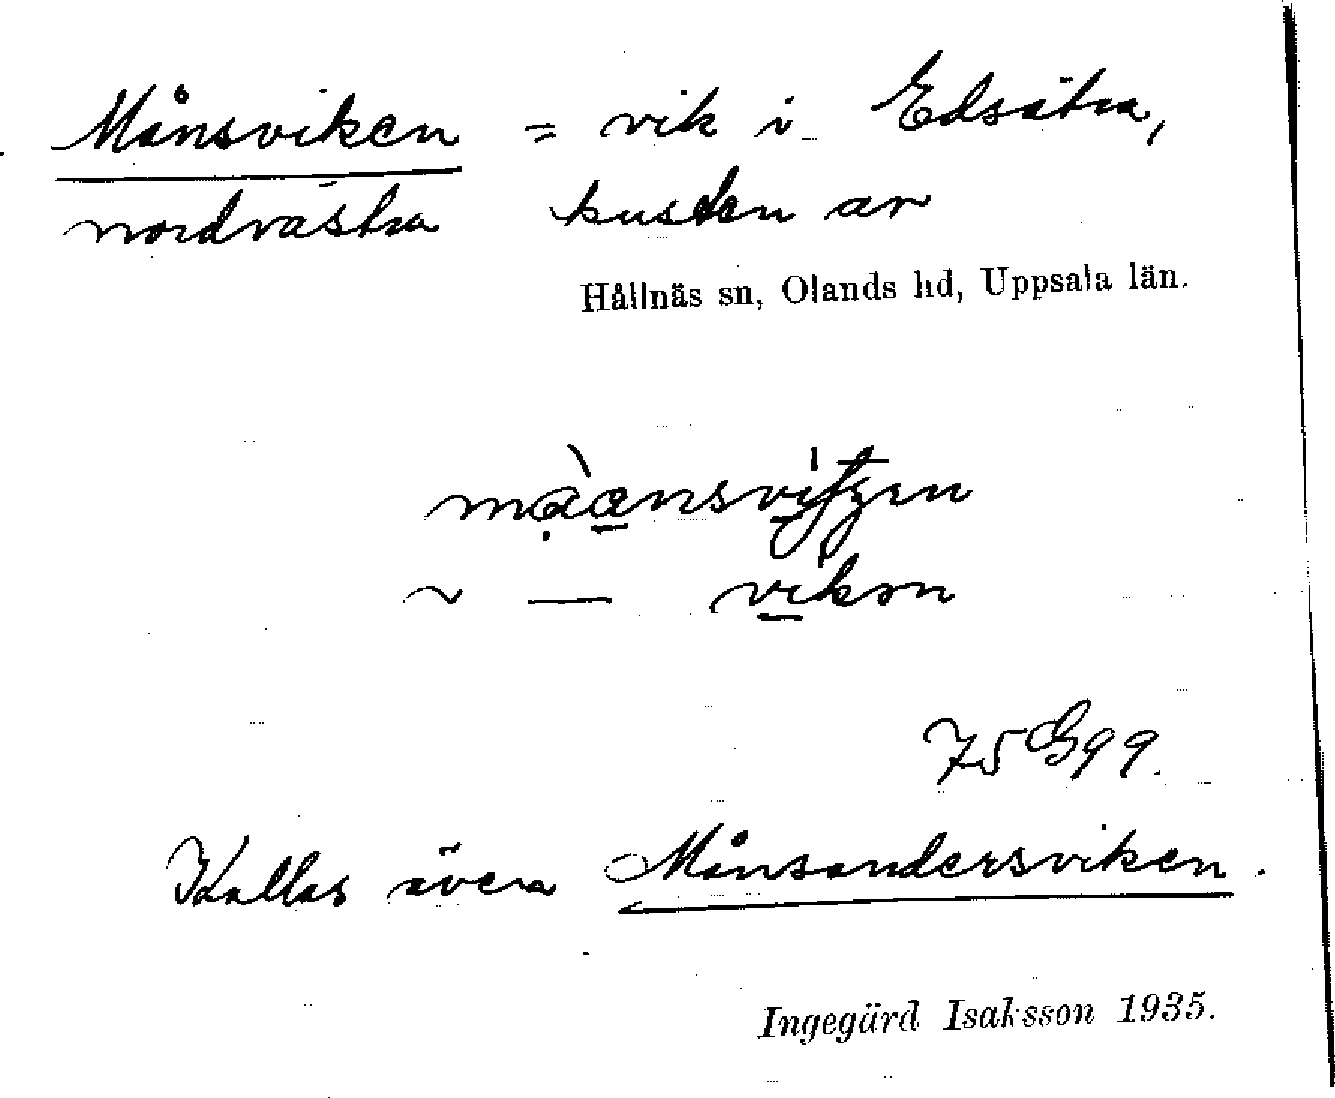 Månsviken = vik i Edsätra,
nordvästra kusten av
Hållnäs sn, Olands hd, Uppsala län.
~ — vikən
75 G 99.
Kallas även Månsandersviken.
Ingegärd Isaksson 1935.